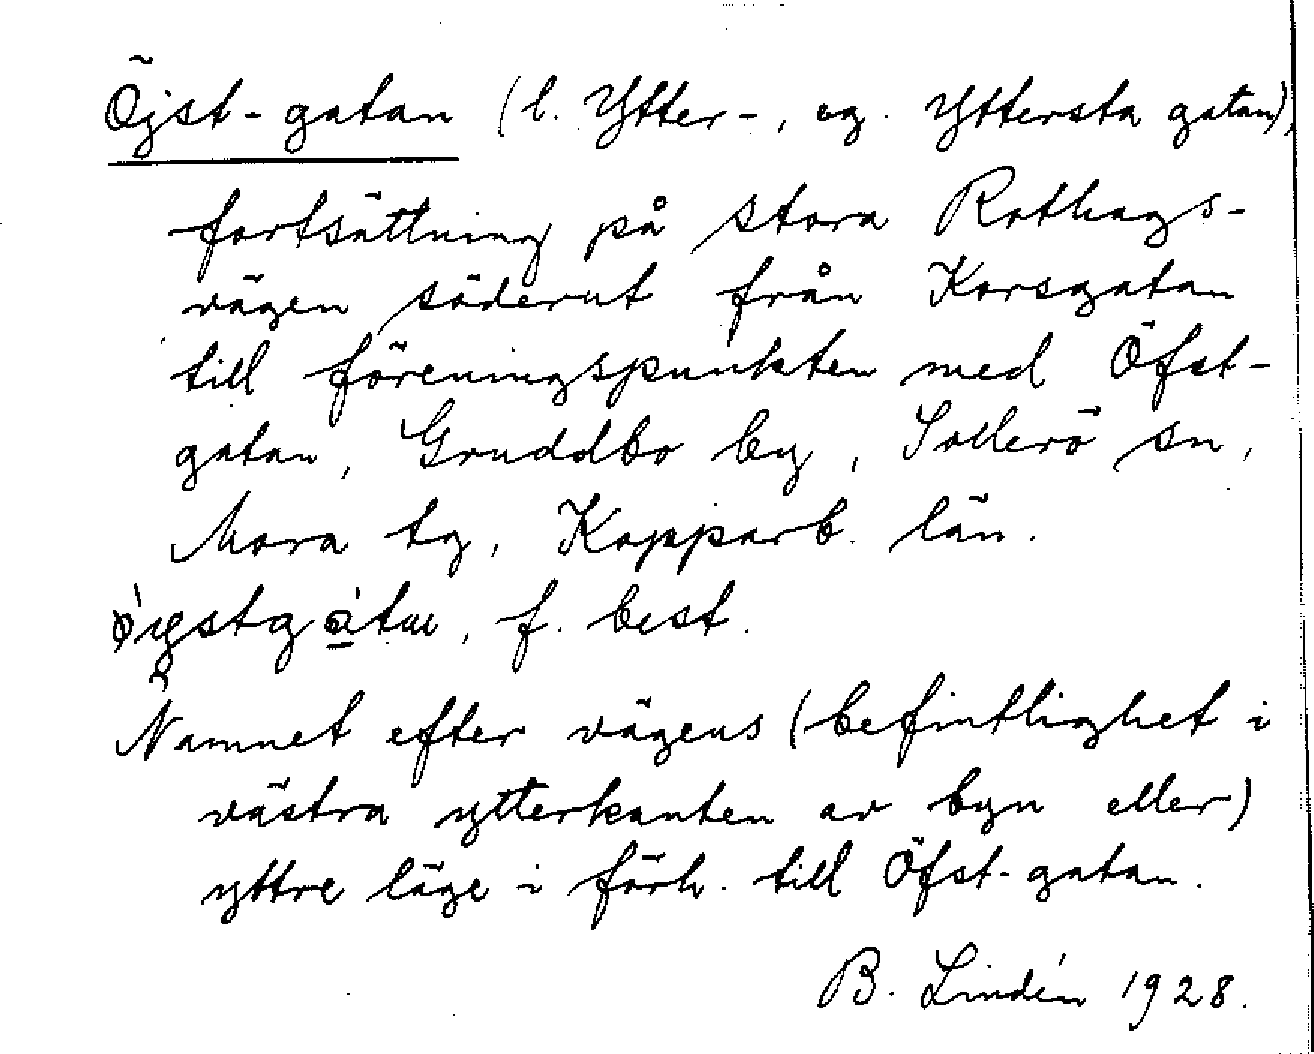 Öjst-gatan (l. Ytter-, eg. Yttersta gatan),
fortsättning på stora Rothags-
vägen söderut från Korsgatan
till föreningspunkten med Öfst-
gatan, Gruddbo by, Sollerö sn,
Mora tg, Kopparb. län.
f. best.
Namnet efter vägens (befintlighet i
västra ytterkanten av byn eller)
yttre läge i förh. till Öfst-gatan.
B. Lindén 1928.